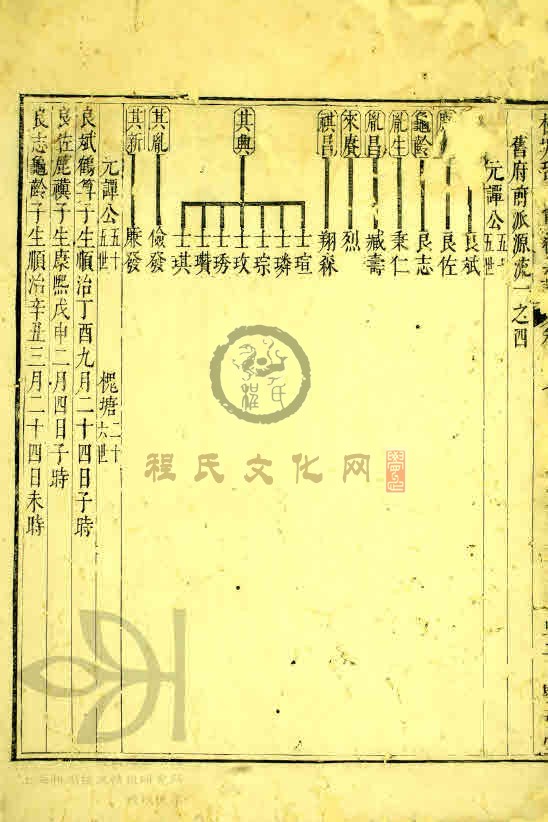 舊府前派源流一之四
元譚公五十五世
良斌
良佐
龜齡
良志
胤生
秉仁
胤昌
臧壽
來賡
烈
祺昌
翔霖
其典
士瑄
士璘
士琮
士玫
士琇
士瓚
士琪
其胤
儉發
其新
廉發
元譚公五十五世 槐塘二十六世
良斌鶴算子生順治丁酉九月二十四日子時
良佐鹿禩子生康熙戊申二月四日子時
良志龜齡子生順治辛丑三月二十四日未時
程氏文化网
程氏